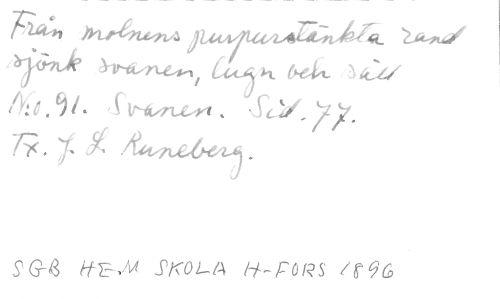 Från molnens purpurstänkta rand
sjönk svanen, lugn och säll
N:o. 91. Svanen. Sid. 77.
Tx. J. L. Runeberg.
SGB HEM SKOLA H-FORS 1896